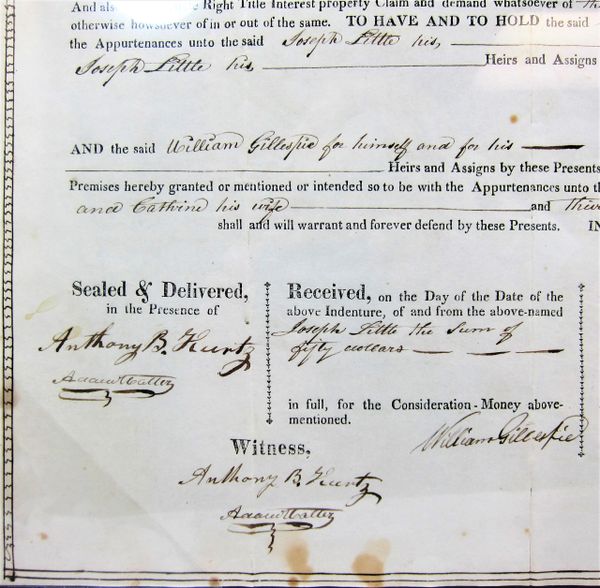 And also Right Title Interest property Claim and demand whatsoever of
otherwise howsoever of in or out of the same. TO HAVE AND TO HOLD the said
the Appurtenances unto the said Joseph Little his,
Joseph Little his, Heirs and Assigns
AND the said William Gillespie for himself and for his
Heirs and Assigns by these Presents
Premises hereby granted or mentioned or intended so to be with the Appurtenances unto
and Cathrine his wife and
shall and will warrant and forever defend by these Presents. IN
Sealed & Delivered,
in the Presence of
Anthony B. Kurtz
Received, on the Day of the Date of the
above Indenture, of and from the above-named
Joseph Little the Sum of
fifty dollars
in full, for the Consideration-Money above-
mentioned.
William Gillespie
Witness,
Anthony B. Kurtz